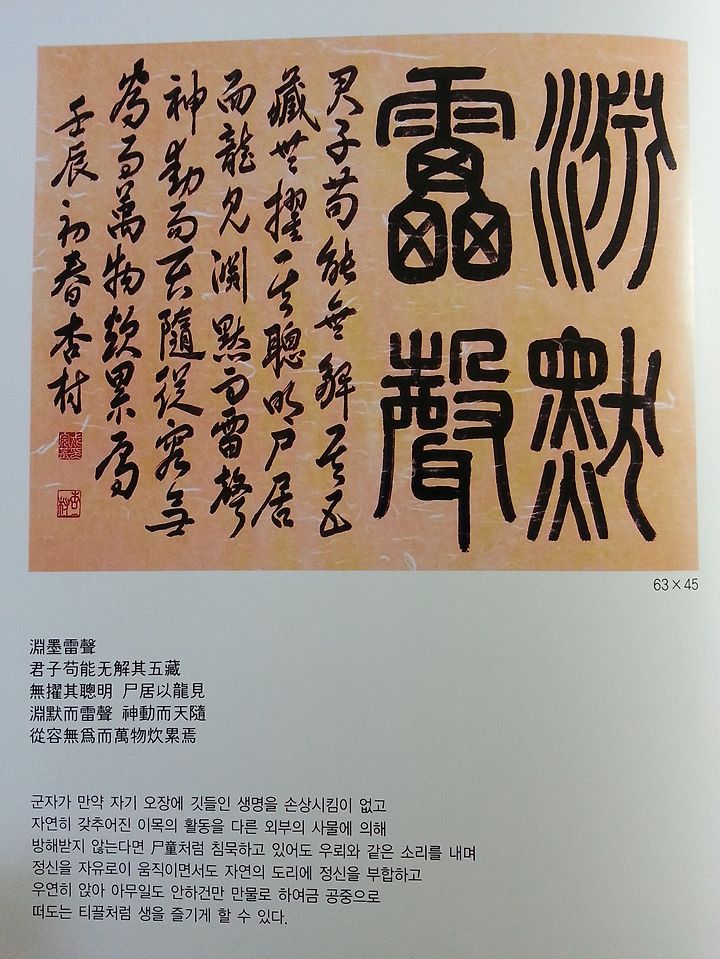 淵默
靁聲
君子苟能無解其五
藏無擢其聰明尸居
而龍見淵默而雷聲
神動而天隨從容無
為而萬物炊累焉
壬辰初春杏村
63×45
淵墨雷聲
君子苟能无解其五藏
無擢其聰明 尸居以龍見
淵默而雷聲 神動而天隨
從容無爲而萬物炊累焉
군자가 만약 자기 오장에 깃들인 생명을 손상시킴이 없고
자연히 갖추어진 이목의 활동을 다른 외부의 사물에 의해
방해받지 않는다면 尸童처럼 침묵하고 있어도 우뢰와 같은 소리를 내며
정신을 자유로이 움직이면서도 자연의 도리에 정신을 부합하고
우연히 앉아 아무일도 안하건만 만물로 하여금 공중으로
떠도는 티끌처럼 생을 즐기게 할 수 있다.